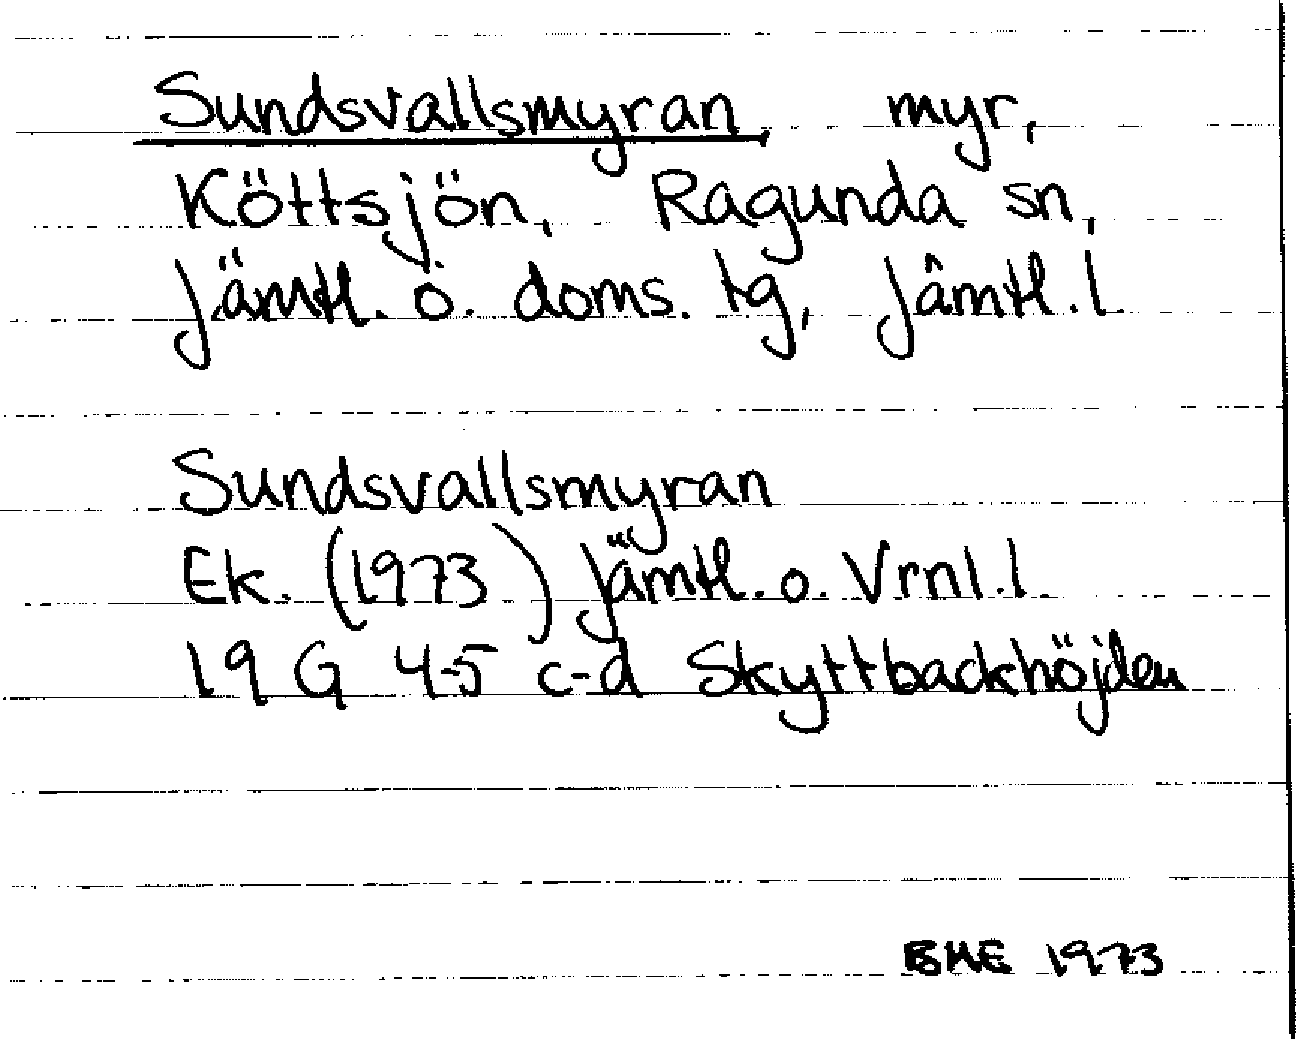 Sundsvallsmyran, myr,
Köttsjön, Ragunda sn,
Jämtl. ö. doms. tg, Jämtl. l.
Sundsvallsmyran
Ek. (1973) Jämtl. o. Vrnl. l.
19 G 4-5 c-d Skyttbackhöjden
BME 1973